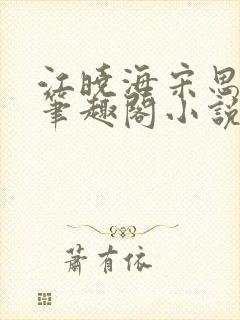 江晓海宋思
笔趣阁小说
萧有依